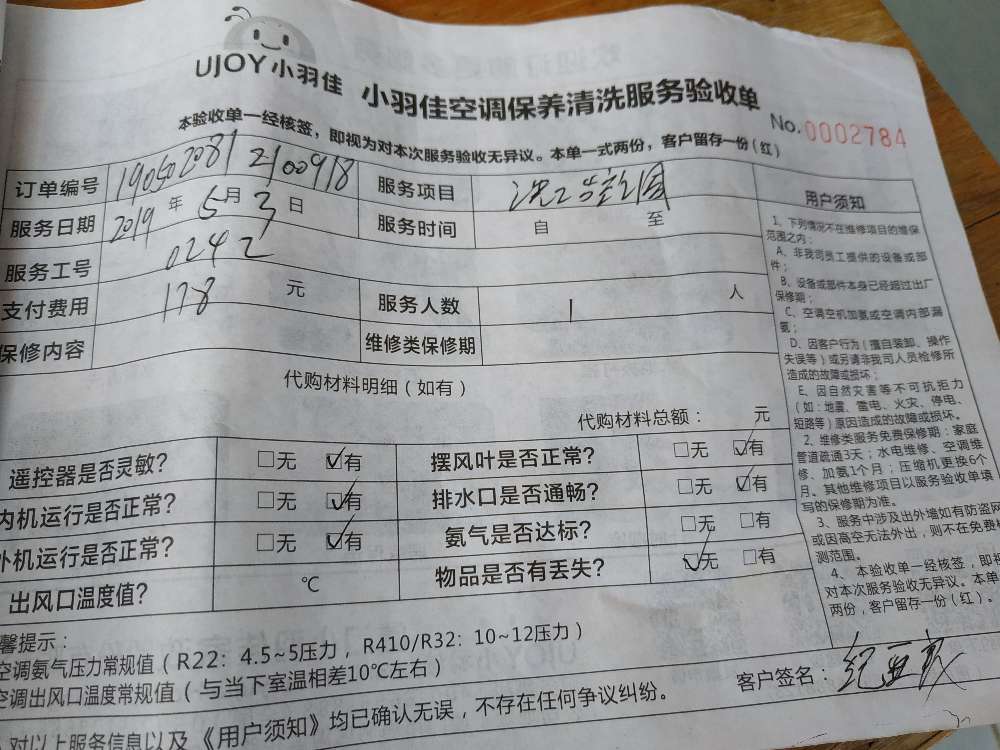 UJOY小羽佳 小羽佳空调保养清洗服务验收单
No.0002784
本验收单一经核签，即视为对本次服务验收无异议。本单一式两份，客户留存一份（红）
订单编号 190502081 2100918 服务项目
服务日期 2019年5月3日 服务时间 自 至
服务工号 0242
支付费用 178 元 服务人数 1 人
保修内容 维修类保修期
代购材料明细（如有）
代购材料总额： 元
遥控器是否灵敏？ □无 ☑有 摆风叶是否正常？ □无 ☑有
内机运行是否正常？ □无 ☑有 排水口是否通畅？ □无 ☑有
外机运行是否正常？ □无 ☑有 氨气是否达标？ □无 □有
出风口温度值？ ℃ 物品是否有丢失？ ☑无 □有
用户须知
1、下列情况不在维修项目的维保
范围之内：
A、非我司员工提供的设备或部
件；
B、设备或部件本身已经超过出厂
保修期；
C、空调空机加氨或空调内部漏
氨；
D、因客户行为（擅自装卸、操作
失误等）或另请非我司人员检修所
造成的故障或损坏；
E、因自然灾害等不可抗拒力
（如：地震、雷电、火灾、停电、
短路等）原因造成的故障或损坏。
2、维修类服务免费保修期：家庭
管道疏通3天；水电维修、空调维
修、加氨1个月；压缩机更换6个
月。其他维修项目以服务验收单填
写的保修期为准。
3、服务中涉及出外墙如有防盗网
或因高空无法外出，则不在免费
测范围。
4、本验收单一经核签，即视
对本次服务验收无异议。本单
两份，客户留存一份（红）。
馨提示：
空调氨气压力常规值（R22：4.5~5压力，R410/R32：10~12压力）
空调出风口温度常规值（与当下室温相差10℃左右）
对以上服务信息以及《用户须知》均已确认无误，不存在任何争议纠纷。
客户签名：